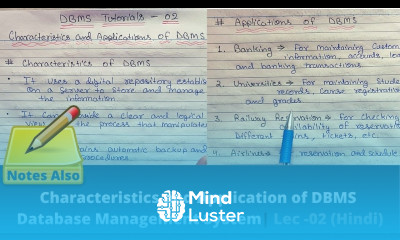 DBMS Tutorials - 02
Characteristics and Applications of DBMS
# Characteristics of DBMS
It uses a digital repository establis
on a Server to Store and manage
the information
It Can a clear and logical
view the process that manipulates
automatic backup and
procedures
# Applications of DBMS
1. Banking → For maintaining Custom
information, accounts, loa
and banking transactions
2. Universities → For maintaining Stude
records, Course registrat
and grades
3. Railway Reservation → For Checking
availability of reservatio
Different tickets, etc.
4. Airlines → reservation and Schedule
Notes Also
Mind
Luster
Characteristics Application of DBMS
Database Management System Lec -02 (Hindi)